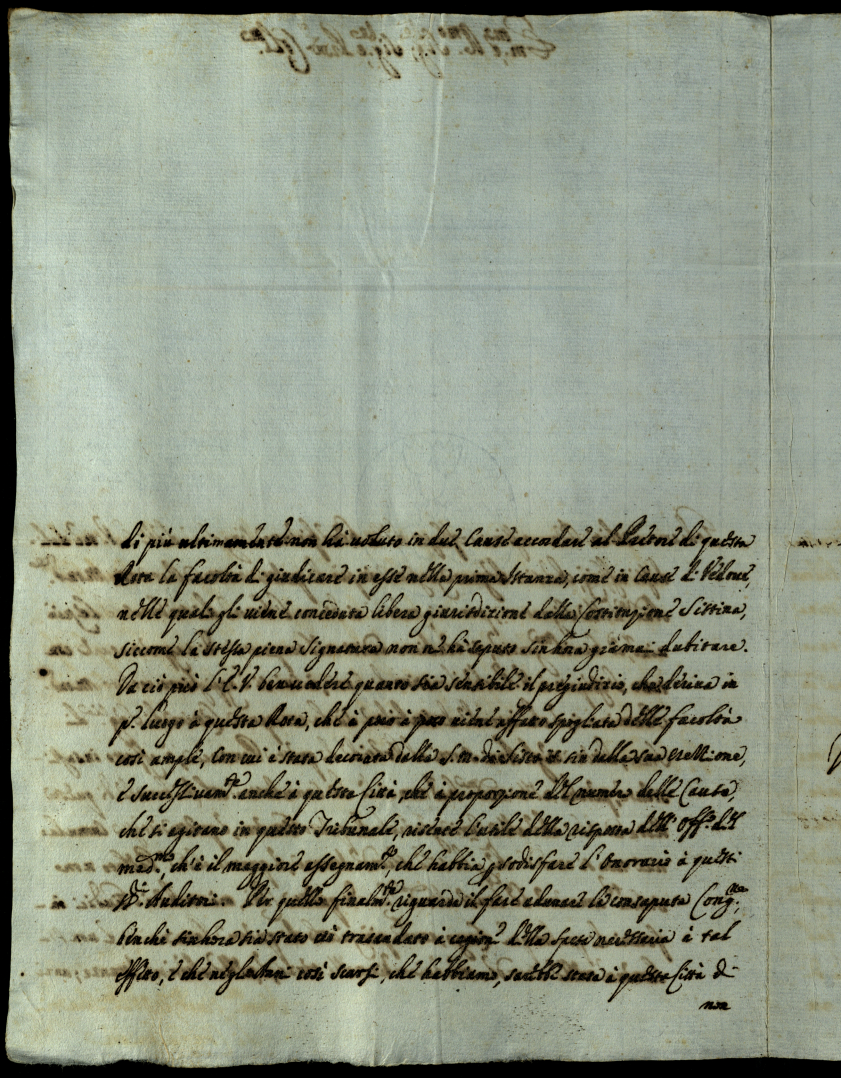 di più ultimamente non hà voluto in due Cause accordare al Rettore di questa
Rota la facoltà di giudicare in esse nella prima Istanza, come in Cause di Vedove,
nelle quali gli viene conceduta libera giurisdizione dalla Costituzione Sistina,
siccome la stessa piena Signatura non ne hà saputo sin hora giamai dubitare.
Da ciò può l'E. V. ben vedere quanto sia sensibile il pregiudizio, che deriva in
p.º luogo à questa Rota, che à poco à poco viene affatto spogliata delle facoltà
così ample, con cui è stata decorata dalla S. M. di Sisto V. sin dalla sua erezione,
è successivam.te anche à questa Città, che à proporzione del numero delle Cause,
che si agitano in questo Tribunale, riceve l'utile della risposta dell' Off.º del
med.mo, ch'è il maggiore assegnam.to, che habbia p sodisfare l'Onorario à questi
SS.ri Auditori. Per quello finalm.te riguarda il fare adunare la consaputa Cong.ne,
benche sin hora sia stato ciò trascurato à cagione della spesa necessaria à tal
effetto, è che negl'Anni così scarsi, che habbiamo, sarebbe stata à questa Città di
non